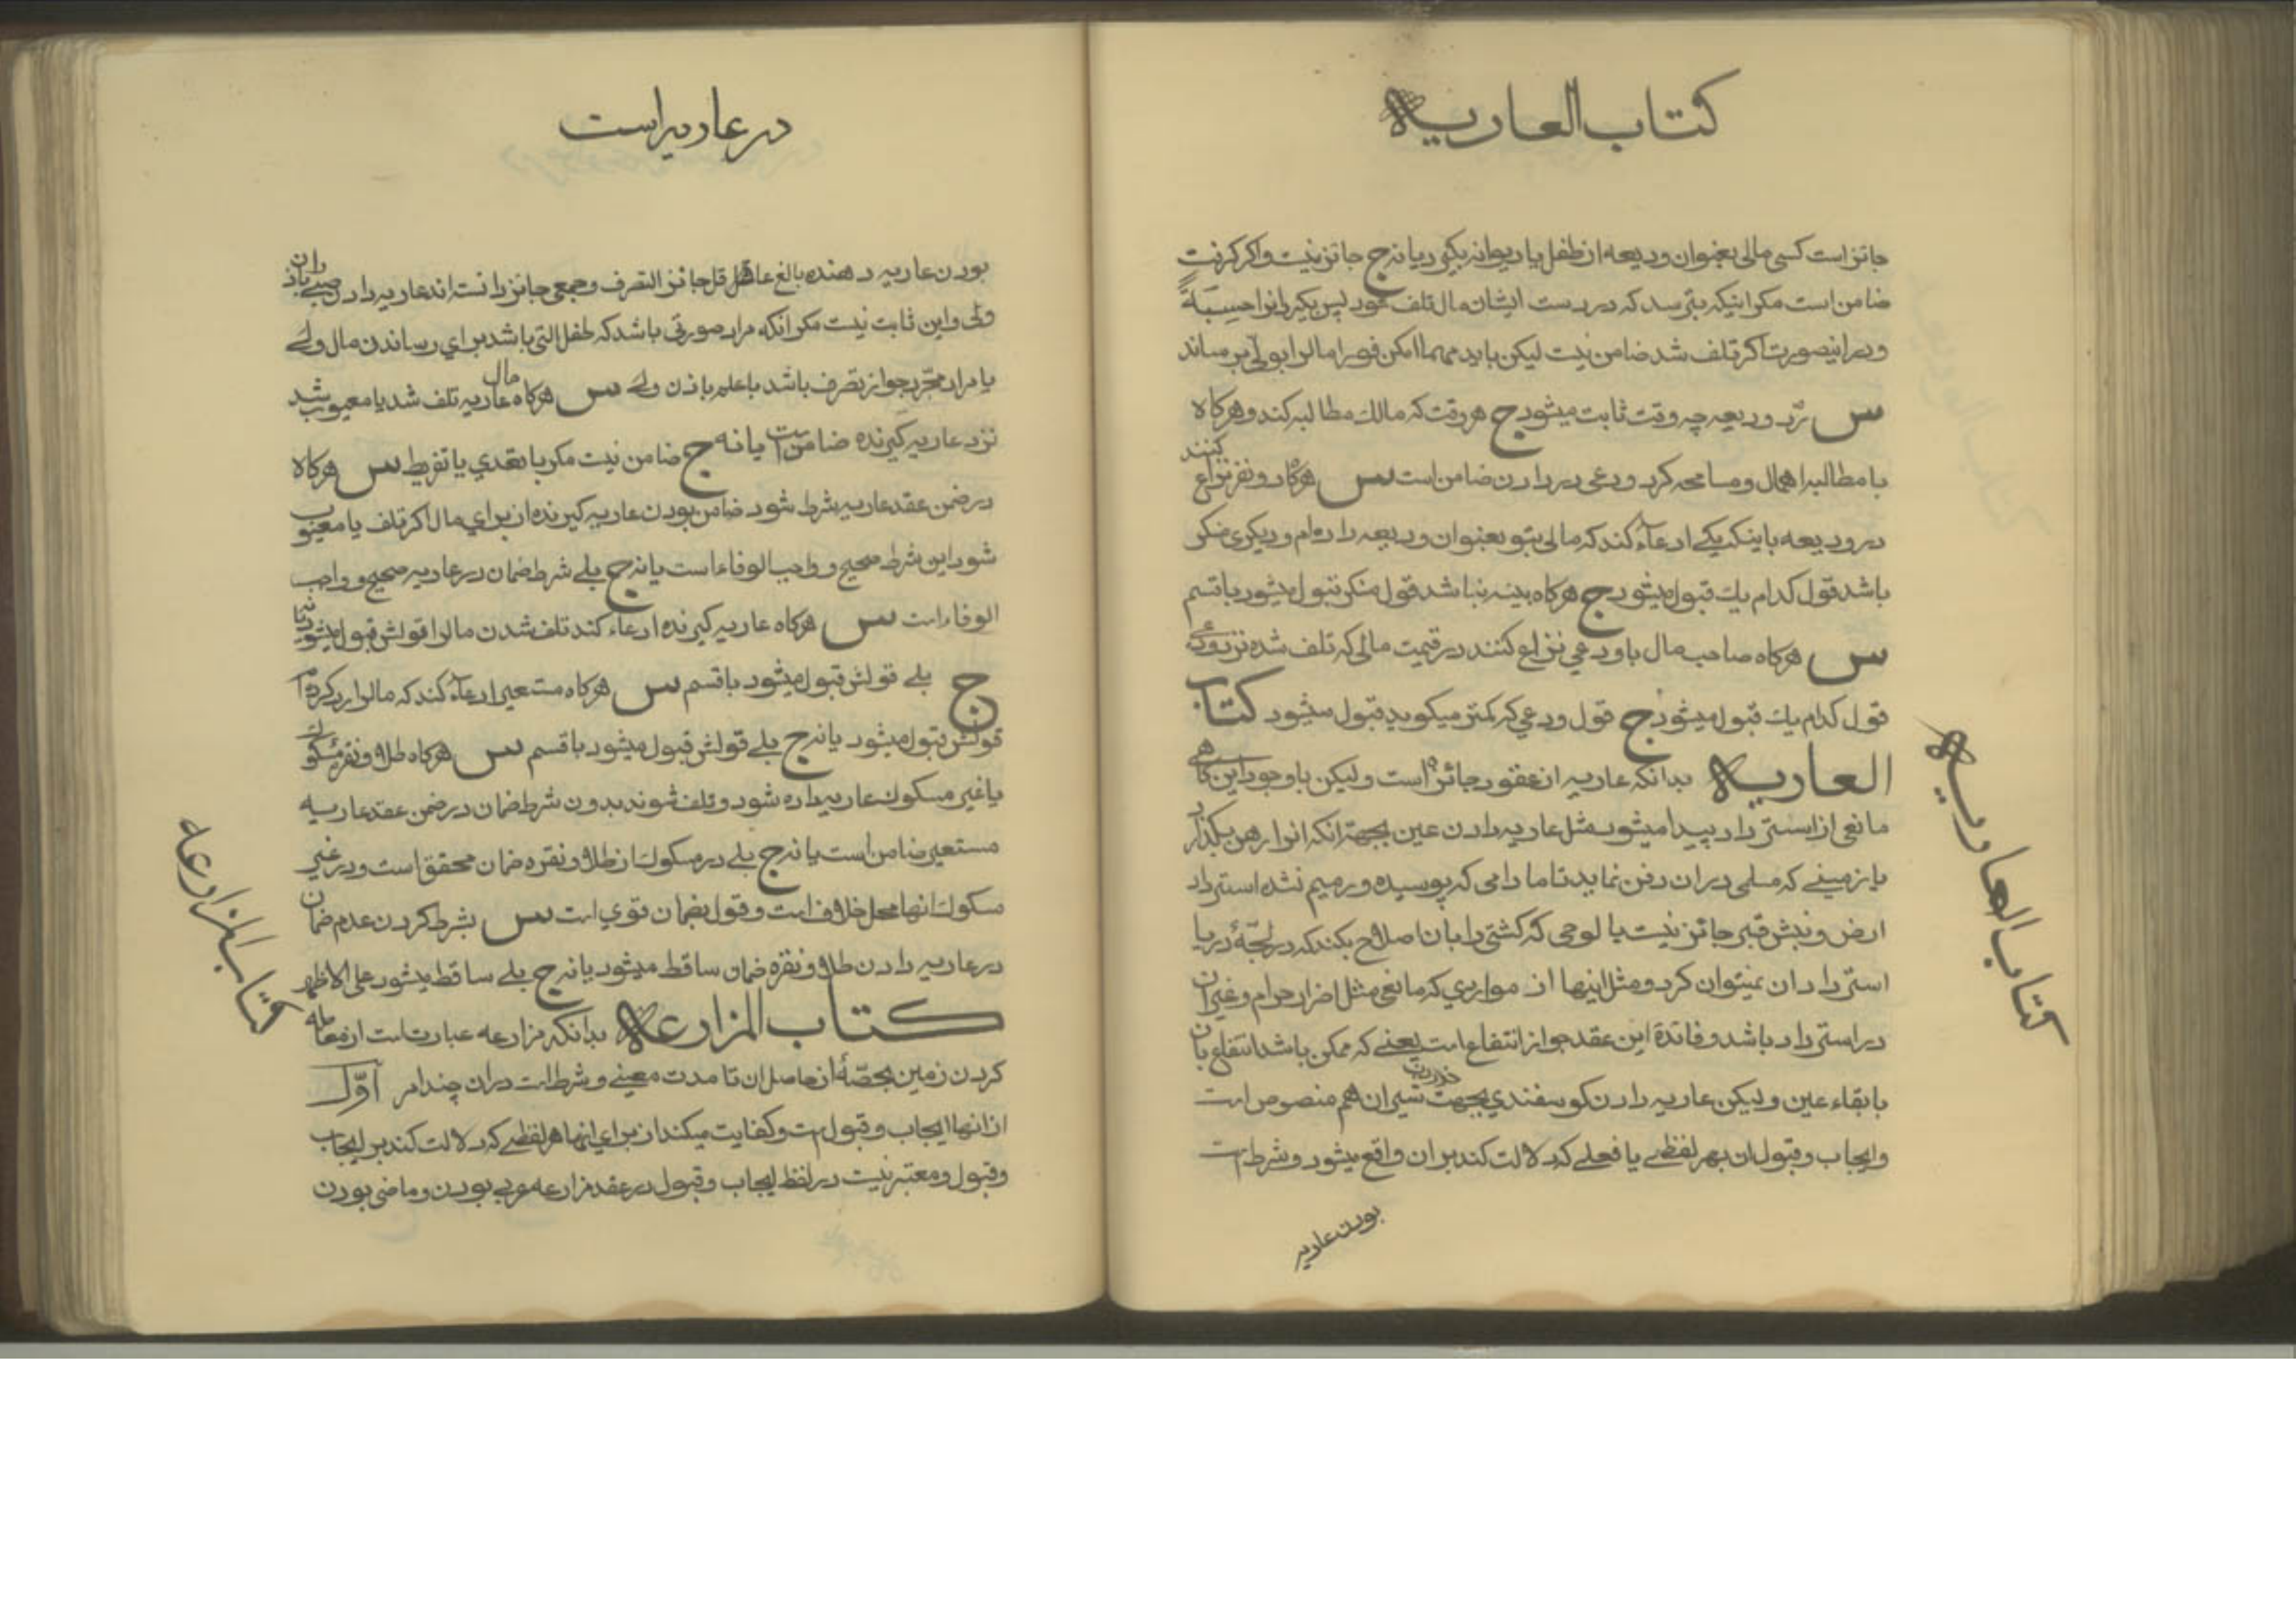 كتاب العاريه
جائز است كسى مالى بعنوان وديعه از طفل يا ديوانه بگيرد يا نه ج جائز نيست و اگر گرفت
ضامن است مگر اينكه بترسد كه در دست ايشان مال تلف شود پس بگيرد انرا حسبةً
و در اينصورت اگر تلف شد ضامن نيست ليكن بايد مهما امكن فورا مالرا بولى برساند
س رد وديعه چه وقت ثابت ميشود ج هر وقت كه مالك مطالبه كند و هرگاه
با مطالبه اهمال و مسامحه كرد ودعى در دادن ضامن است س هرگاه دو نفر نزاع كنند
در وديعه باينكه يكى ادعاء كند كه مالى بتو بعنوان وديعه داده‌ام و ديگرى منكر
باشد قول كدام يك قبول ميشود ج هرگاه بينه نباشد قول منكر قبول ميشود با قسم
س هرگاه صاحب مال با ودعى نزاع كنند در قيمت مالى كه تلف شده نزد ودعى
قول كدام يك قبول ميشود ج قول ودعى كه كمتر ميگويد قبول ميشود كتاب
العاريه بدانكه عاريه از عقود جائزه است و ليكن با وجود اين گاهى
مانعى از استرداد پيدا ميشود مثل عاريه دادن عين بجهة انكه انرا رهن بگذارد
يا زمينى كه مسلمى در ان دفن نمايد تا مادامى كه پوسيده و رميم نشده استرداد
ارض و نبش قبر جائز نيست يا لوحى كه كشتى را بان اصلاح بكند كه در لجّهٔ دريا
استرداد ان نميتوان كرد و مثل اينها از مواردى كه مانعى مثل اضرار حرام و غير ان
در استرداد باشد و فائدهٔ اين عقد جواز انتفاع است يعنى كه ممكن باشد انتفاع بان
با بقاء عين و ليكن عاريه دادن گوسفندى بجهت خوردن شير ان هم منصوص است
و ايجاب و قبول ان بهر لفظى يا فعلى كه دلالت كند بر ان واقع ميشود و شرط است
بودن عاريه
كتاب العاريه
در عاريه است
بودن عاريه دهنده بالغ عاقل جائز التصرف و جمعى جائز دانسته‌اند عاريه دادن صبى باذن
ولى و اين ثابت نيست مگر انكه مراد صورتى باشد كه طفل التى باشد براى رساندن مال ولى
يا مراد مجرّد جواز تصرف باشد با علم باذن ولى س هرگاه مال عاريه تلف شد يا معيوب شد
نزد عاريه گيرنده ضامن است يا نه ج ضامن نيست مگر با تعدى يا تفريط س هرگاه
در ضمن عقد عاريه شرط شود ضامن بودن عاريه گيرنده از براى مال اگر تلف يا معيوب
شود اين شرط صحيح و واجب الوفاء است يا نه ج بلى شرط ضمان در عاريه صحيح و واجب
الوفاء است س هرگاه عاريه گيرنده ادعاء كند تلف شدن مالرا قولش قبول ميشود يا نه
ج بلى قولش قبول ميشود با قسم س هرگاه مستعير ادعاء كند كه مالرا رد كرده‌ام
قولش قبول ميشود يا نه ج بلى قولش قبول ميشود با قسم س هرگاه طلا و نقره مسكوك
يا غير مسكوك عاريه داده شود و تلف شوند بدون شرط ضمان در ضمن عقد عاريه
مستعير ضامن است يا نه ج بلى در مسكوك از طلا و نقره ضمان محقق است و در غير
مسكوك انها محل خلاف است و قول بضمان قوى است س بشرط كردن عدم ضمان
در عاريه دادن طلا و نقره ضمان ساقط ميشود يا نه ج بلى ساقط ميشود على الاظهر
كتاب المزارعه بدانكه مزارعه عبارت است از معامله
كردن زمين بحصّهٔ از حاصل ان تا مدت معينى و شرط است در ان چند امر اوّل
از انها ايجاب و قبول است و كفايت ميكند از براى اينها هر لفظى كه دلالت كند بر ايجاب
و قبول و معتبر نيست در لفظ ايجاب و قبول در عقد مزارعه عربى بودن و ماضى بودن
كتاب المزارعه